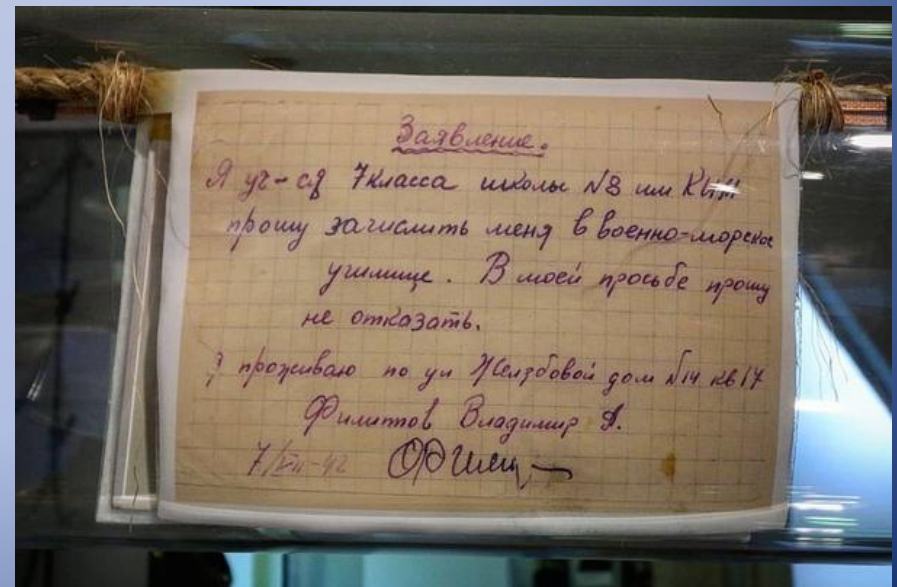 Заявление.
Я уч-ся 7 класса школы №8 им КИМ
прошу зачислить меня в военно-морское
училище. В моей просьбе прошу
не отказать.
проживаю по ул Желябовой дом №14 кв 17
Филиппов Владимир А.
7/VIII-42